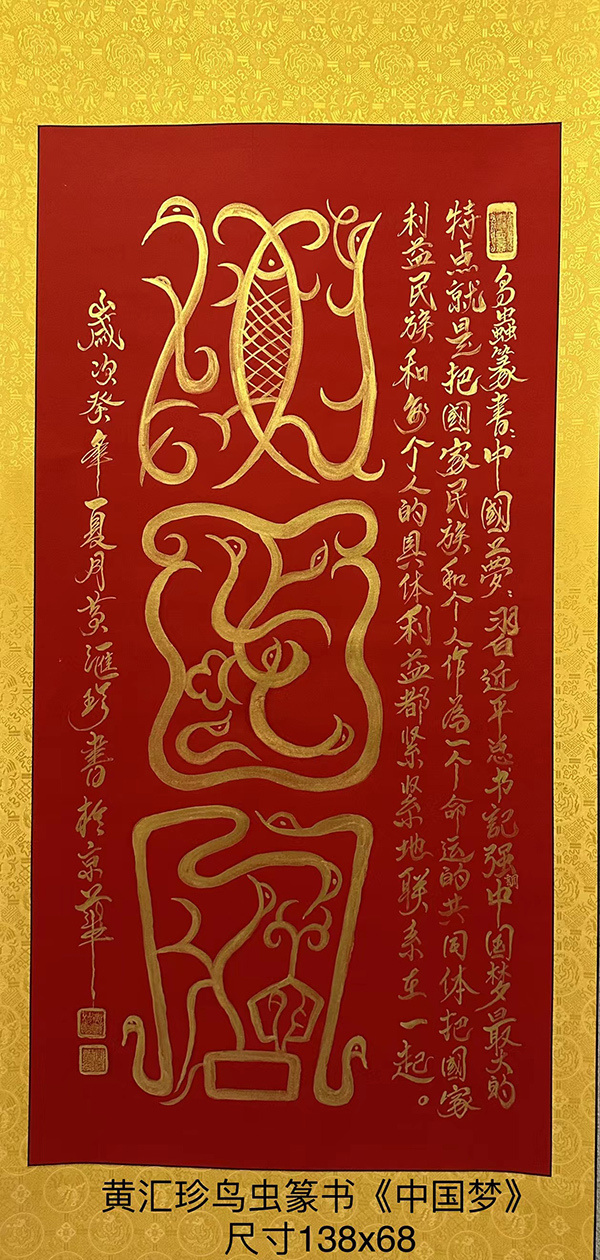 鸟蟲篆书：中國夢：習近平总书記强调中国梦最大的
特点就是把國家民族和个人作為一个命运的共同体把國家
利益民族和每个人的具体利益都紧紧地联系在一起。
中
国
梦
歲次癸卯年夏月黄滙珍書於京華
黄汇珍鸟虫篆书《中国梦》
尺寸138x68